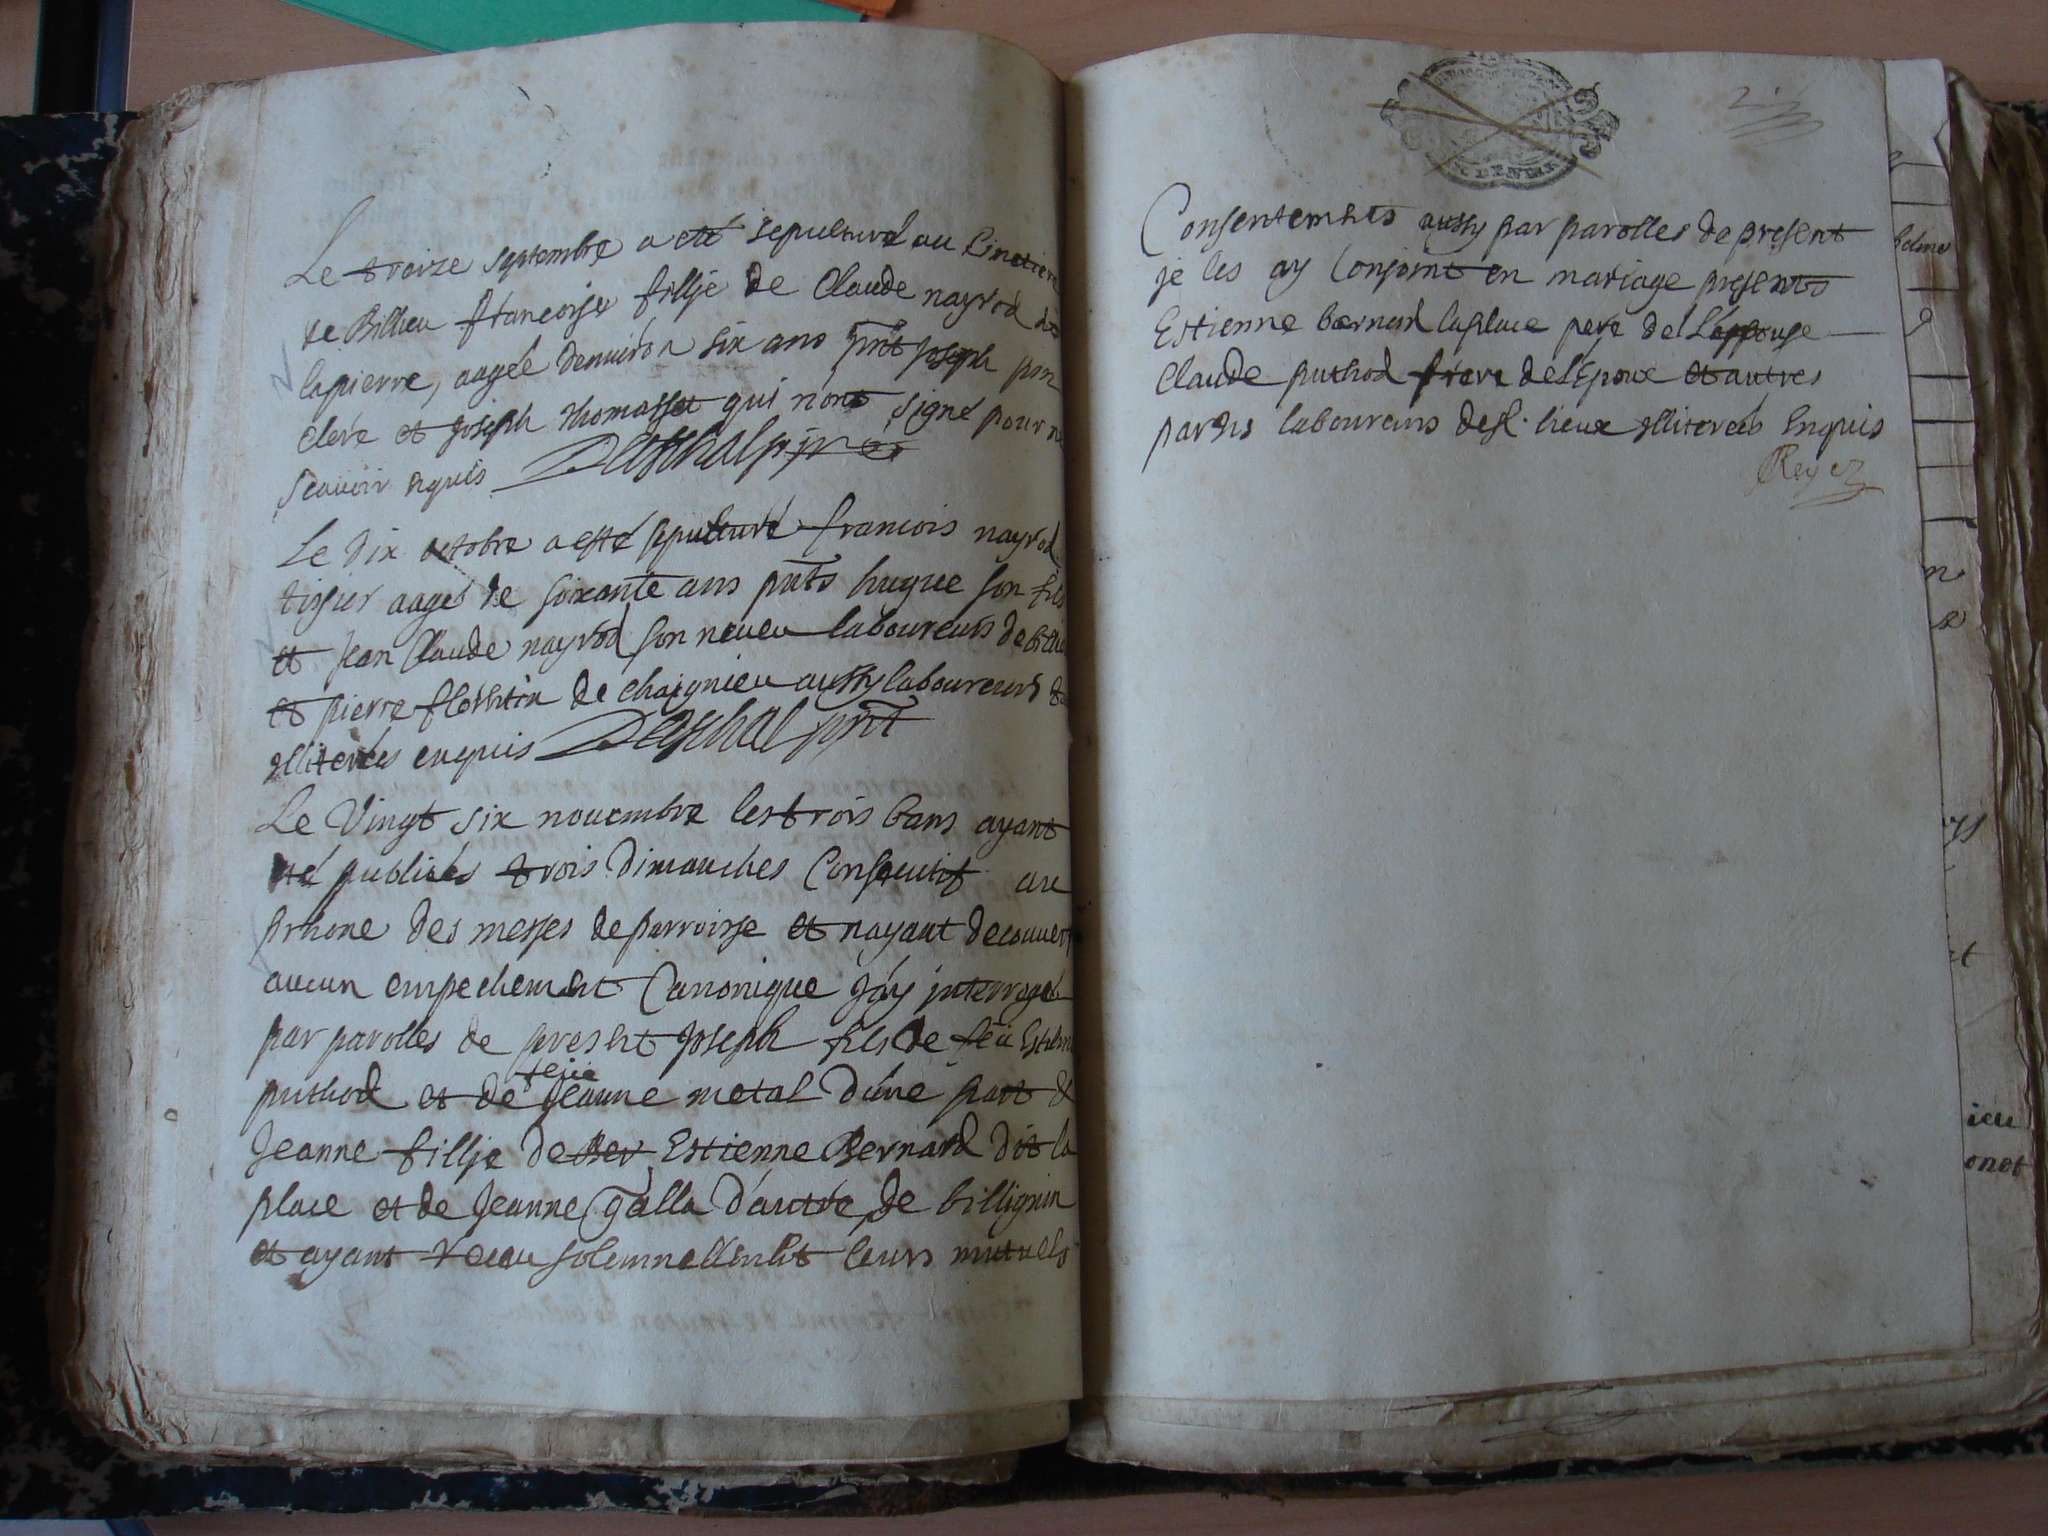 Le treize septembre a eté sepulturé au Cimetiere
de Billieu francoise fillje de Claude nayrod dit
lapierre, aagée denviron six ans pnt Joseph
clere et Joseph thomasset qui nont signé pour ne
scavoir enquis
Le dix octobre a esté sepulturé francois nayrod
tissier aagé de soixante ans pnts hugue son fils
et Jean Claude nayrod son neveu laboureurs de
et pierre de chaignieu aussy laboureurs
illiterés enquis
Le Vingt six novembre les trois bans ayant
eté publiés trois dimanches Consecutif au
prhone des messes de parroisse et nayant decouvert
aucun empechement Canonique J'ay interrogé
par parolles de present Joseph fils de feu Estienne
puthod et de feüe Jeanne metal d'une part &
Jeanne fillje de Ber Estienne Bernard dit la
place et de Jeanne Galla d'autre de billignin
et ayant receu solemnellement leurs mutuels
Consentements aussy par parolles de present
je les ay Conjoint en mariage presents
Estienne bernard laplace pere de L'eppouse
Claude puthod frere de l'Epoux et autres
parens laboureurs desd. lieux illiterés Enquis
Reyez
2.
DENIER